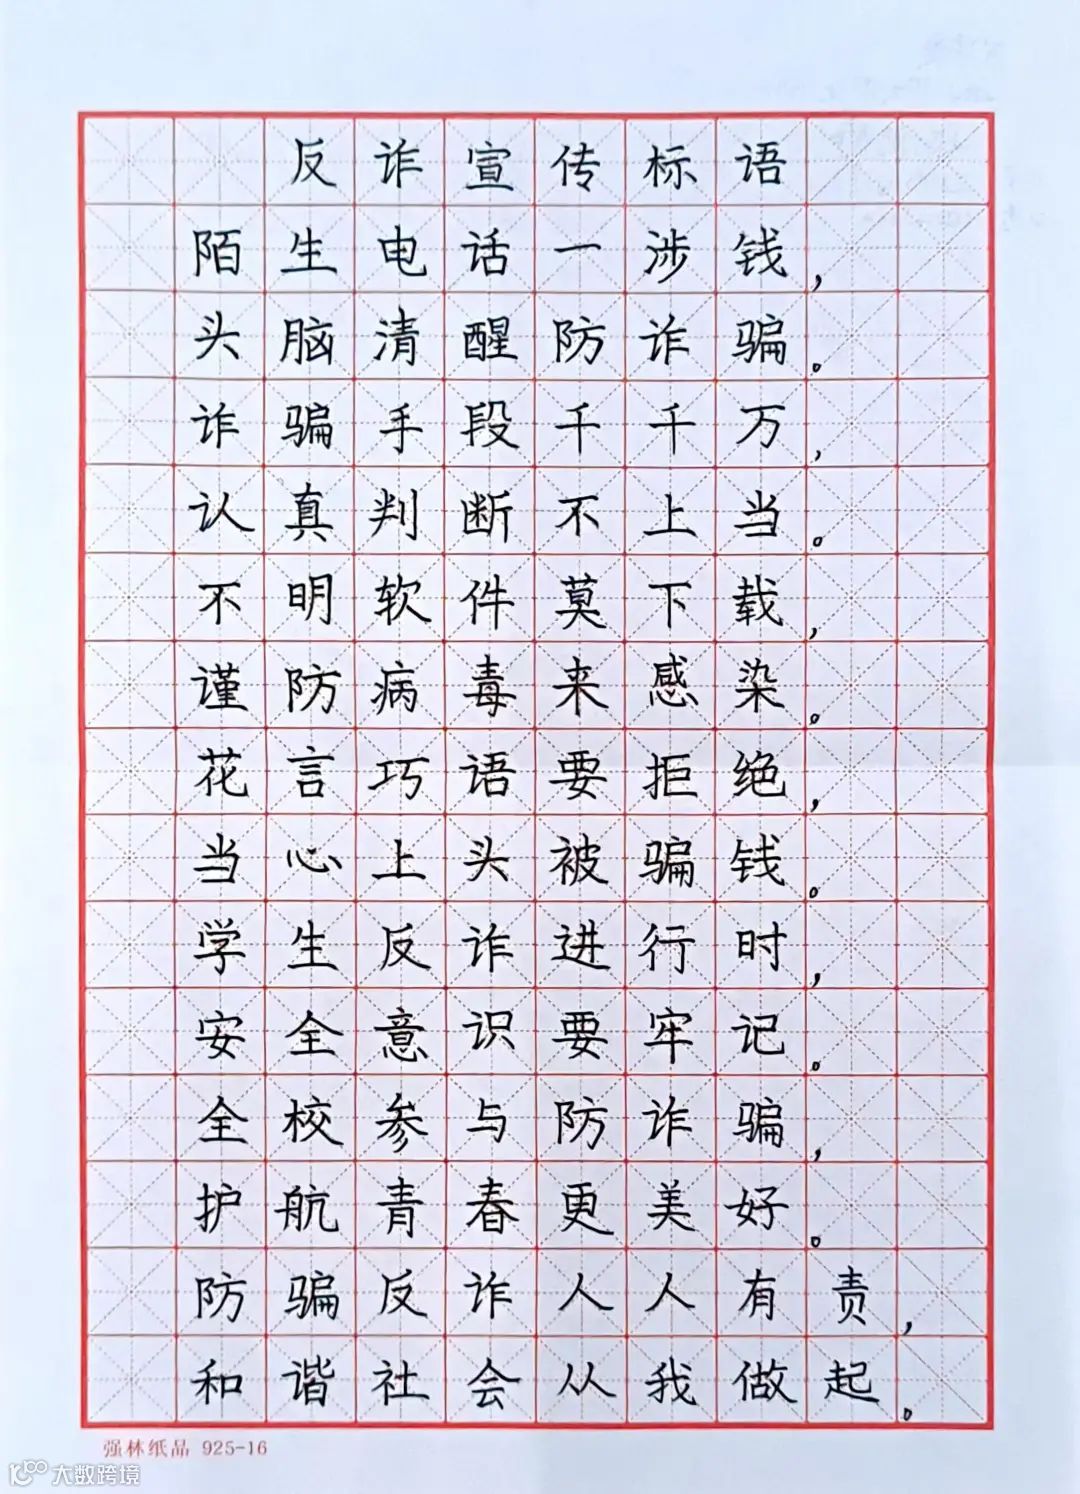 反诈宣传标语
陌生电话一涉钱，
头脑清醒防诈骗。
诈骗手段千千万，
认真判断不上当。
不明软件莫下载，
谨防病毒来感染。
花言巧语要拒绝，
当心上头被骗钱。
学生反诈进行时，
安全意识要牢记。
全校参与防诈骗，
护航青春更美好。
防骗反诈人人有责，
和谐社会从我做起。
强林纸品 925-16
大数跨境